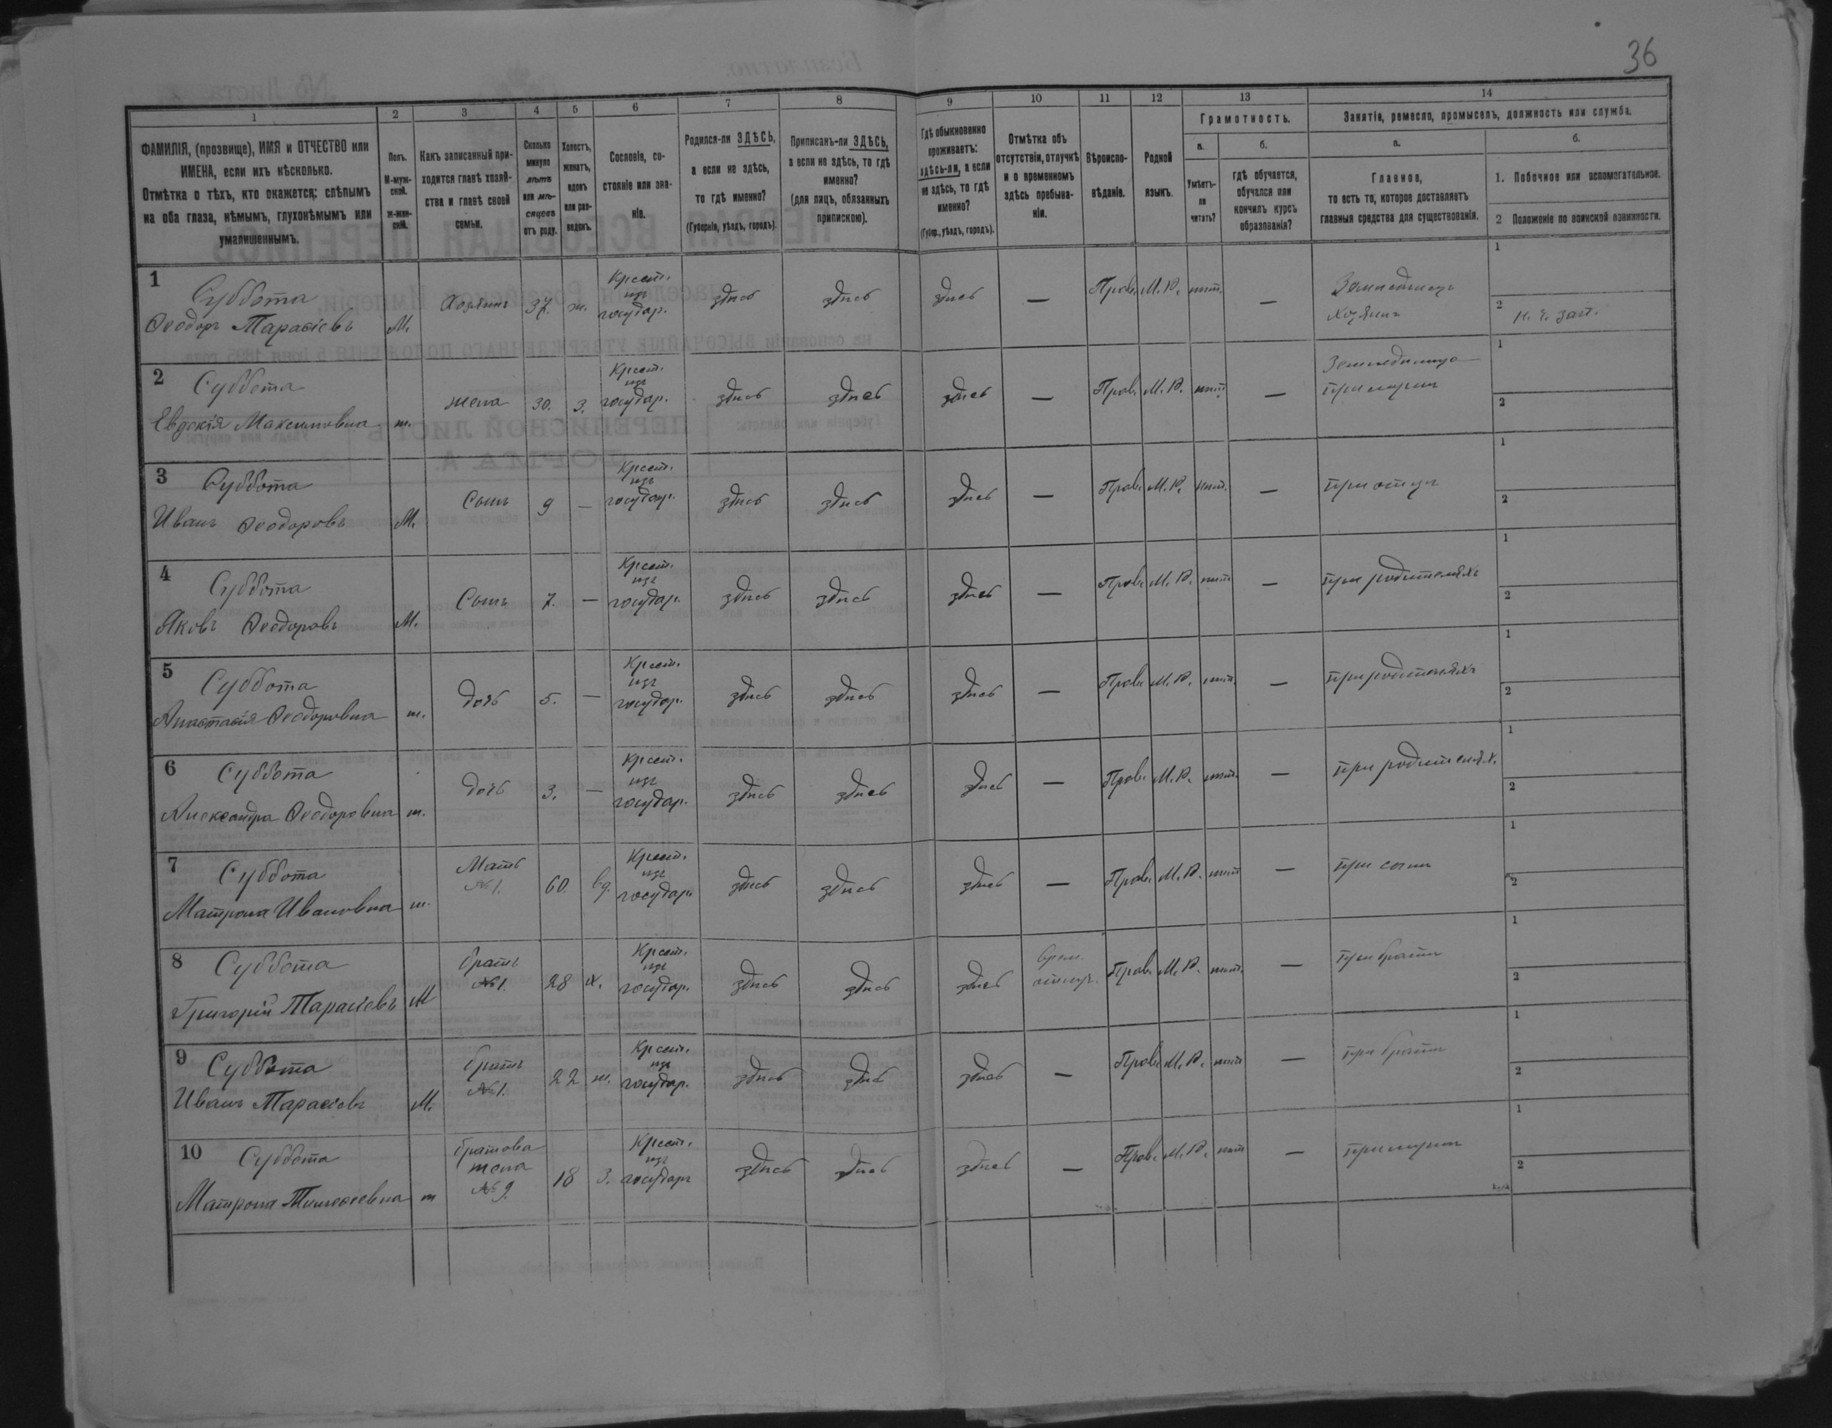 36
1
2
3
4
5
6
7
8
9
10
11
12
13
14
ФАМИЛІЯ, (прозвище), ИМЯ и ОТЧЕСТВО или
ИМЕНА, если ихъ нѣсколько.
Отмѣтка о тѣхъ, кто окажется: слѣпымъ
на оба глаза, нѣмымъ, глухонѣмымъ или
умалишеннымъ.
Полъ.
М-муж-
ской.
Ж-жен-
скій.
Какъ записанный при-
ходится главѣ хозяй-
ства и главѣ своей
семьи.
Сколько
минуло
лѣтъ
или мѣ-
сяцевъ
отъ роду.
Холостъ,
женатъ,
вдовъ
или раз-
веденъ.
Сословіе, со-
стояніе или зва-
ніе.
Родился-ли ЗДѢСЬ,
а если не здѣсь,
то гдѣ именно?
(Губернія, уѣздъ, городъ).
Приписанъ-ли ЗДѢСЬ,
а если не здѣсь, то гдѣ
именно?
(для лицъ, обязанныхъ
припискою).
Гдѣ обыкновенно
проживаетъ:
здѣсь-ли, а если
не здѣсь, то гдѣ
именно?
(Губер., уѣздъ, городъ).
Отмѣтка объ
отсутствіи, отлучкѣ
и о временномъ
здѣсь пребыва-
ніи.
Вѣроиспо-
вѣданіе.
Родной
языкъ.
Грамотность.
а.
Умѣетъ-
ли
читать?
б.
гдѣ обучается,
обучался или
кончилъ курсъ
образованія?
Занятіе, ремесло, промыселъ, должность или служба.
а.
Главное,
то есть то, которое доставляетъ
главныя средства для существованія.
б.
1. Побочное или вспомогательное.
2 Положеніе по воинской повинности.
1 Суббота
Ѳеодоръ Тарасіевъ М. Хозяинъ 37. ж. Крест. изъ государ. здѣсь здѣсь здѣсь — Прав. М. Р. нѣт. — Земледѣлецъ Хозяинъ 1 2
2 Суббота
Евдокія Максимовна ж. жена 30. З. Крест. изъ государ. здѣсь здѣсь здѣсь — Прав. М. Р. нѣт — при мужѣ 1 2
3 Суббота
Иванъ Ѳеодоровъ М. Сынъ 9 — Крест. изъ государ. здѣсь здѣсь здѣсь — Прав. М. Р. нѣт. — при отцѣ 1 2
4 Суббота
Яковъ Ѳеодоровъ М. Сынъ 7. — Крест. изъ государ. здѣсь здѣсь здѣсь — Прав. М. Р. нѣт — при родителяхъ 1 2
5 Суббота
Анастасія Ѳеодоровна ж. дочь 5. — Крест. изъ государ. здѣсь здѣсь здѣсь — Прав. М. Р. нѣт. — при родителяхъ 1 2
6 Суббота
Александра Ѳеодоровна ж. дочь 3. — Крест. изъ государ. здѣсь здѣсь здѣсь — Прав. М. Р. нѣт. — при родителях. 1 2
7 Суббота
Матрона Ивановна ж. Мать №1. 60. вд. Крест. изъ государ. здѣсь здѣсь здѣсь — Прав. М. Р. нѣт — при сынѣ 1 2
8 Суббота
Григорій Тарасіевъ М братъ №1. 28 х. Крест. изъ государ. здѣсь здѣсь здѣсь Прав. М. Р. нѣт. — при братѣ 1 2
9 Суббота
Иванъ Тарасіевъ М. братъ №1. 22 ж. Крест. изъ государ. здѣсь здѣсь здѣсь — Прав. М. Р. нѣт — при братѣ 1 2
10 Суббота
Матрона ж братова жена №9. 18 З. Крест. изъ государ здѣсь здѣсь здѣсь — Прав. М. Р. нѣт — при мужѣ 1 2